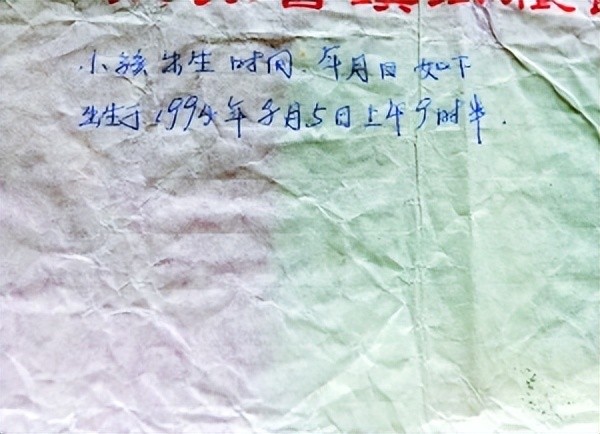 小孩出生时间.年月日如下
出生于1994年8月5日上午9时半.